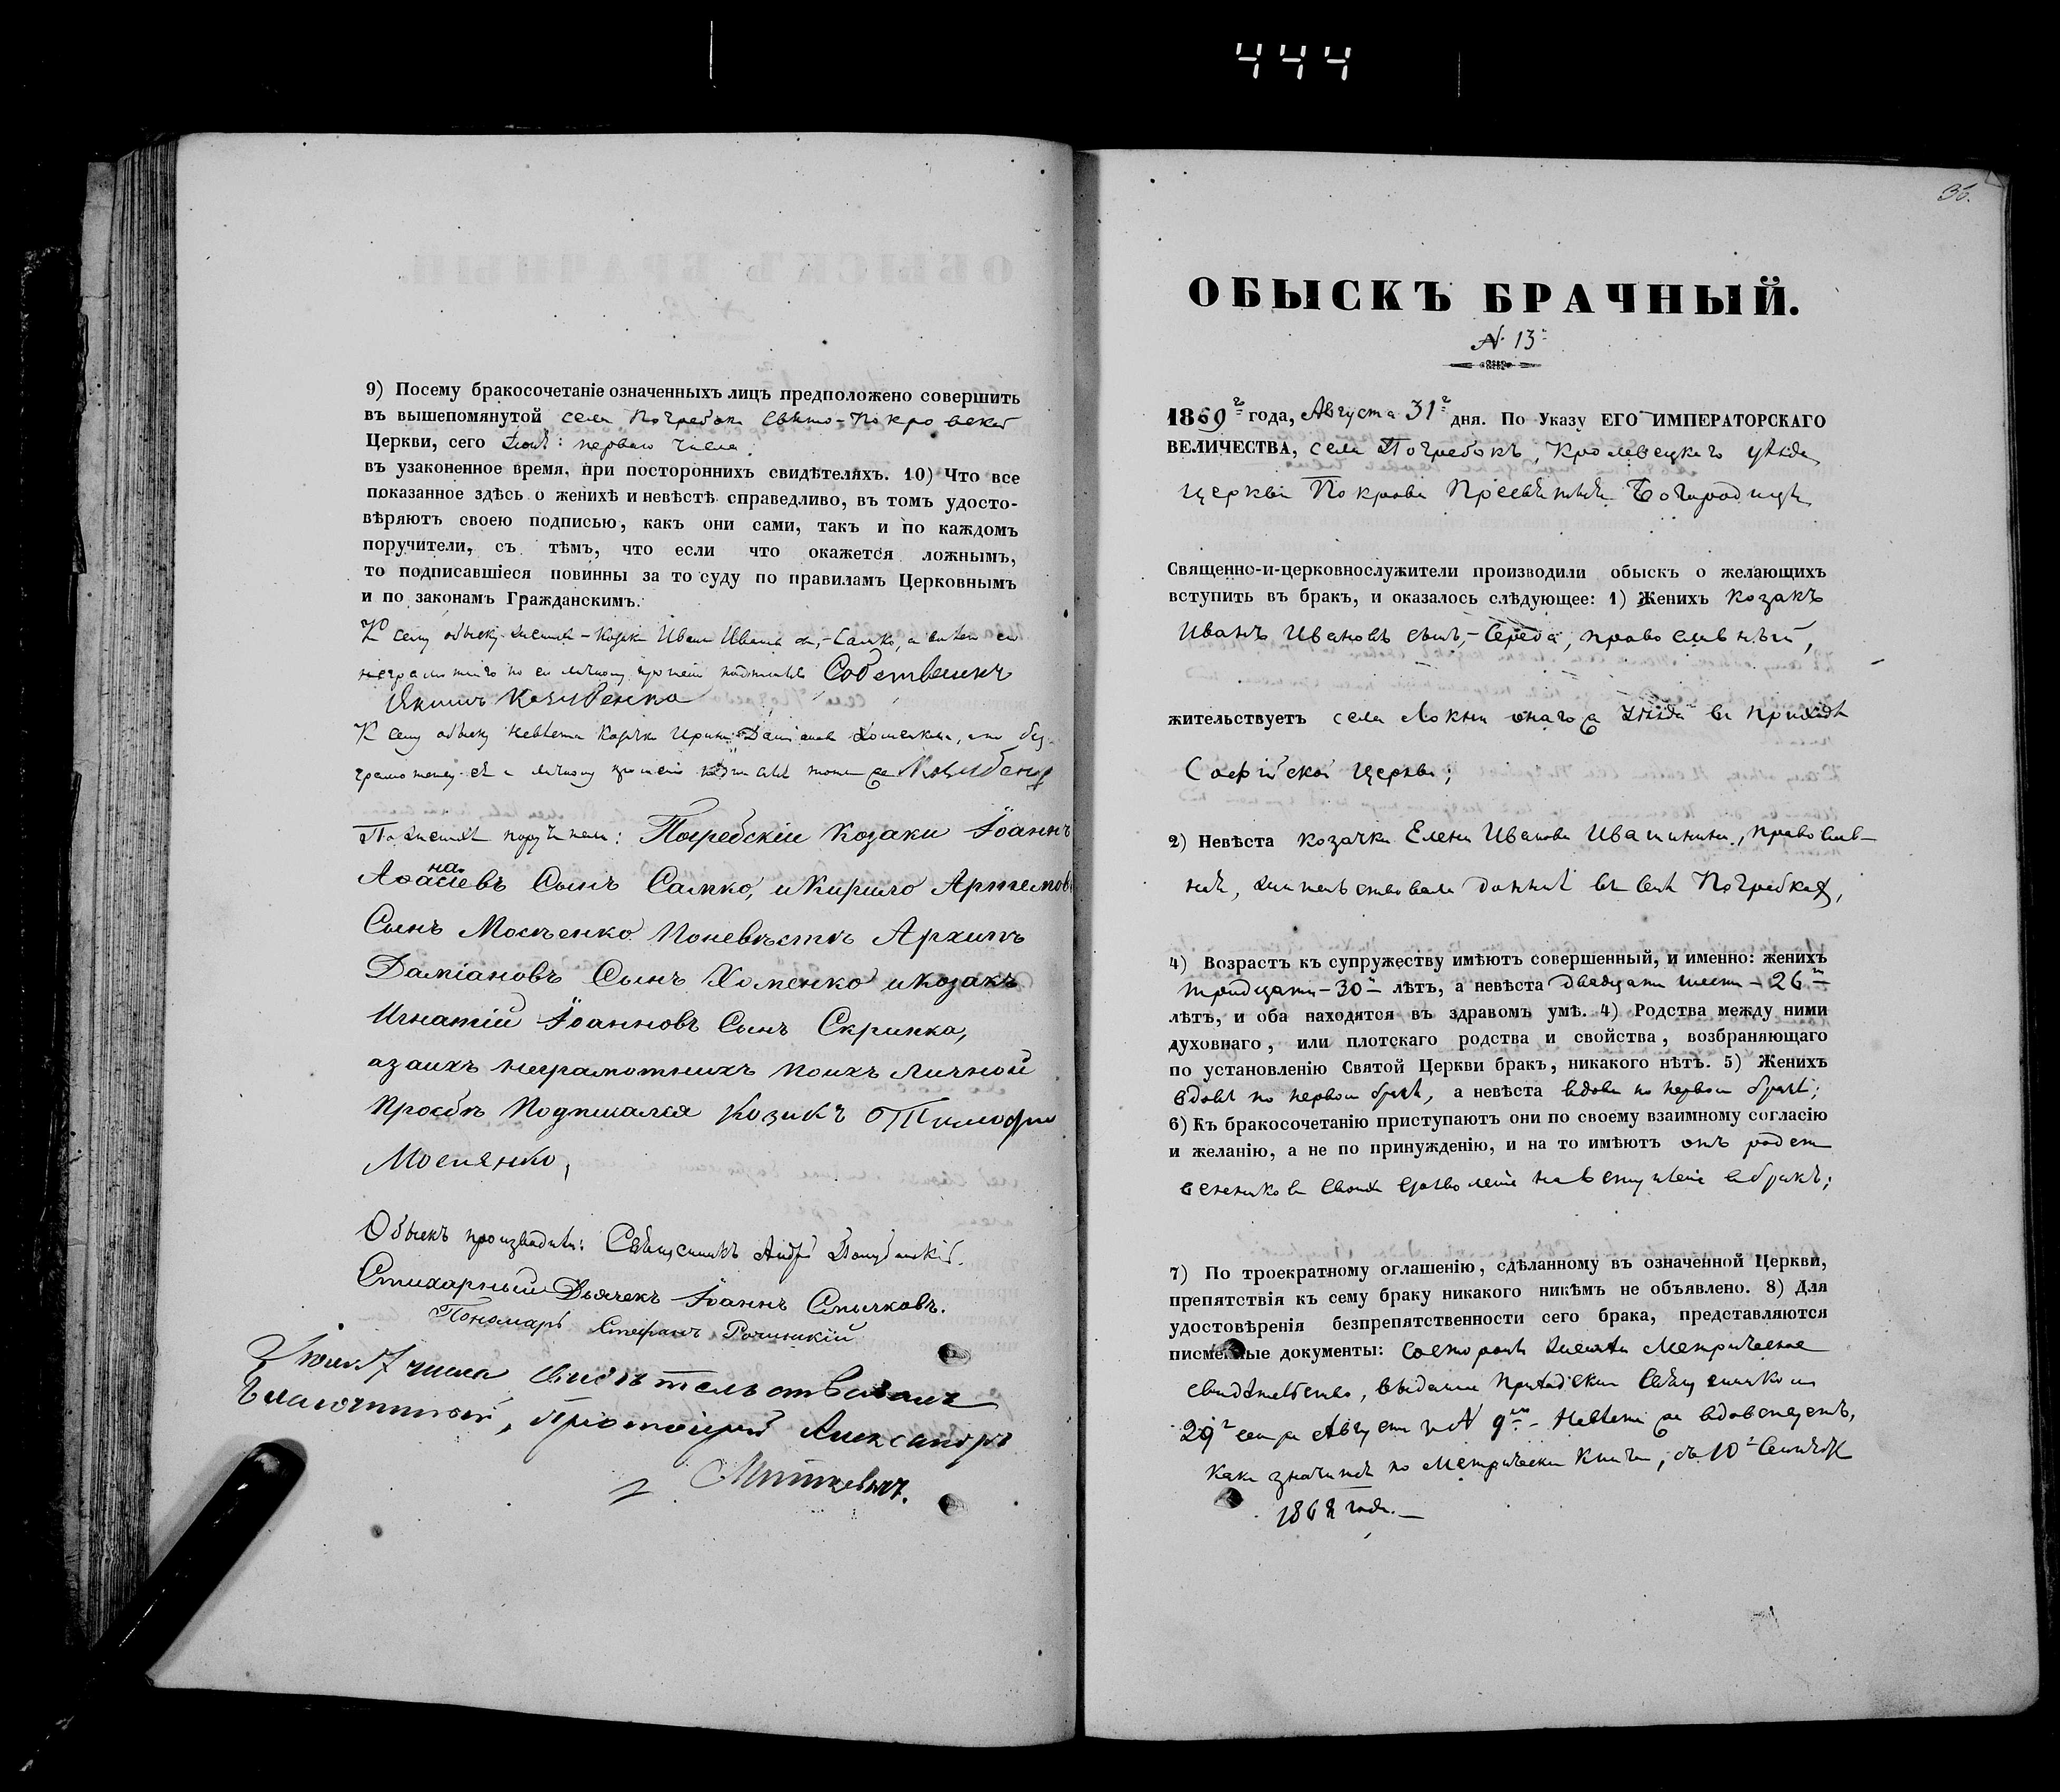 444
9) Посему бракосочетаніе означенныхъ лицъ предположено совершить
въ вышепомянутой села Погребокъ Свято-Покровской
Церкви, сего Іюля: перваго числа.
въ узаконенное время, при постороннихъ свидѣтеляхъ. 10) Что все
показанное здѣсь о женихѣ и невѣстѣ справедливо, въ томъ удосто-
вѣряютъ своею подписью, какъ они сами, такъ и по каждомъ
поручители, съ тѣмъ, что если что окажется ложнымъ,
то подписавшіеся повинны за то суду по правиламъ Церковнымъ
и по законамъ Гражданскимъ.
К сему обыску женихъ - Козакъ Иванъ Ивановъ Самко, а вместо его
неграмотнаго по его личному прошенію подписался Собственикъ
К сему обыску невѣста Козачка Ирина Даміанова Хоменкова, а по без-
грамотству ея и личному прошенію подписался тотъ же
По женихѣ поручители: Погребскіи козаки Іоаннъ
Аѳанасіевъ Сынъ Самко, и Кирило Артемовъ
Сынъ Мосѣенко Поневѣстѣ Архипъ
Даміановъ Сынъ Хоменко и козакъ
Игнатій Іоанновъ Сынъ Скрипка,
азаихъ неграмотнихъ поихъ личной
просбѣ Подписался козакъ Тимофей
Мосиенко,
Обыскъ производили: Священникъ Андрей
Стихарный Дьячекъ Іоаннъ Смычковъ.
Пономарь Стефанъ
Іюля 7 числа свидѣтельствовалъ
Благочинный, Протоіерей Александръ
Миткевичъ.
ОБЫСКЪ БРАЧНЫЙ.
N. 13
1869 года, Августа 31 дня. По Указу ЕГО ИМПЕРАТОРСКАГО
ВЕЛИЧЕСТВА, села Погребокъ, Кролевецкаго уѣзда
церкви Покрова Пресвятыя Богородицы
Священно-и-церковнослужители производили обыскъ о желающихъ
вступить въ бракъ, и оказалось слѣдующее: 1) Женихъ козакъ
Иванъ Ивановъ сынъ, - Середа, православный,
жительствуетъ села Локни онаго же уѣзда въ приходѣ
Софійской церкви;
2) Невѣста козачка Елена Иванова Ивашинина, православ-
ная, жительствовала доннѣ въ селѣ Погребкахъ,
4) Возрастъ къ супружеству имѣютъ совершенный, и именно: женихъ
тридцати - 30 - лѣтъ, а невѣста двадцати шести - 26
лѣтъ, и оба находятся въ здравомъ умѣ. 4) Родства между ними
духовнаго, или плотскаго родства и свойства, возбраняющаго
по установленію Святой Церкви бракъ, никакого нѣтъ. 5) Женихъ
вдовъ по первомъ бракѣ, а невѣста вдова по первомъ бракѣ;
6) Къ бракосочетанію приступаютъ они по своему взаимному согласію
и желанію, а не по принужденію, и на то имѣютъ отъ родст
венниковъ своихъ дозволеніе на вступленіе в бракъ;
7) По троекратному оглашенію, сдѣланному въ означенной Церкви,
препятствія къ сему браку никакого никѣмъ не объявлено. 8) Для
удостовѣренія безпрепятственности сего брака, представляются
писменные документы: Состороны жениха Метрическое
свидѣтельство, выданное приходскимъ Священникомъ
29 сего же Августа за N 9 - Невѣста же вдовствуетъ,
какъ значится по Метрической книгѣ, съ 10 Сентября
1868 года. -